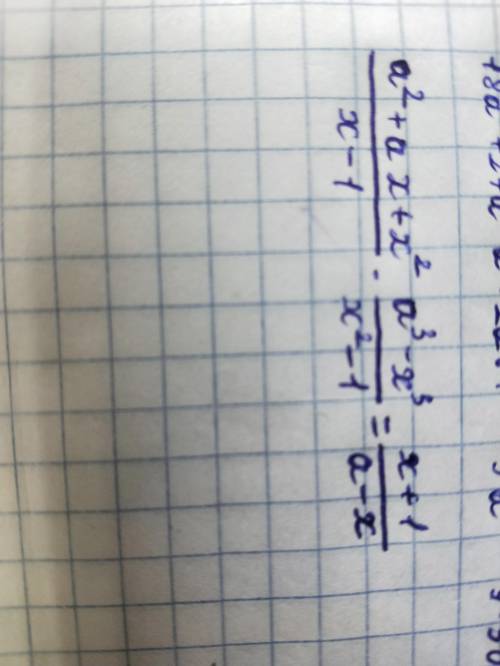 \frac{a^2+ax+x^2}{x-1} \cdot \frac{a^3-x^3}{x^2-1} = \frac{x+1}{a-x}